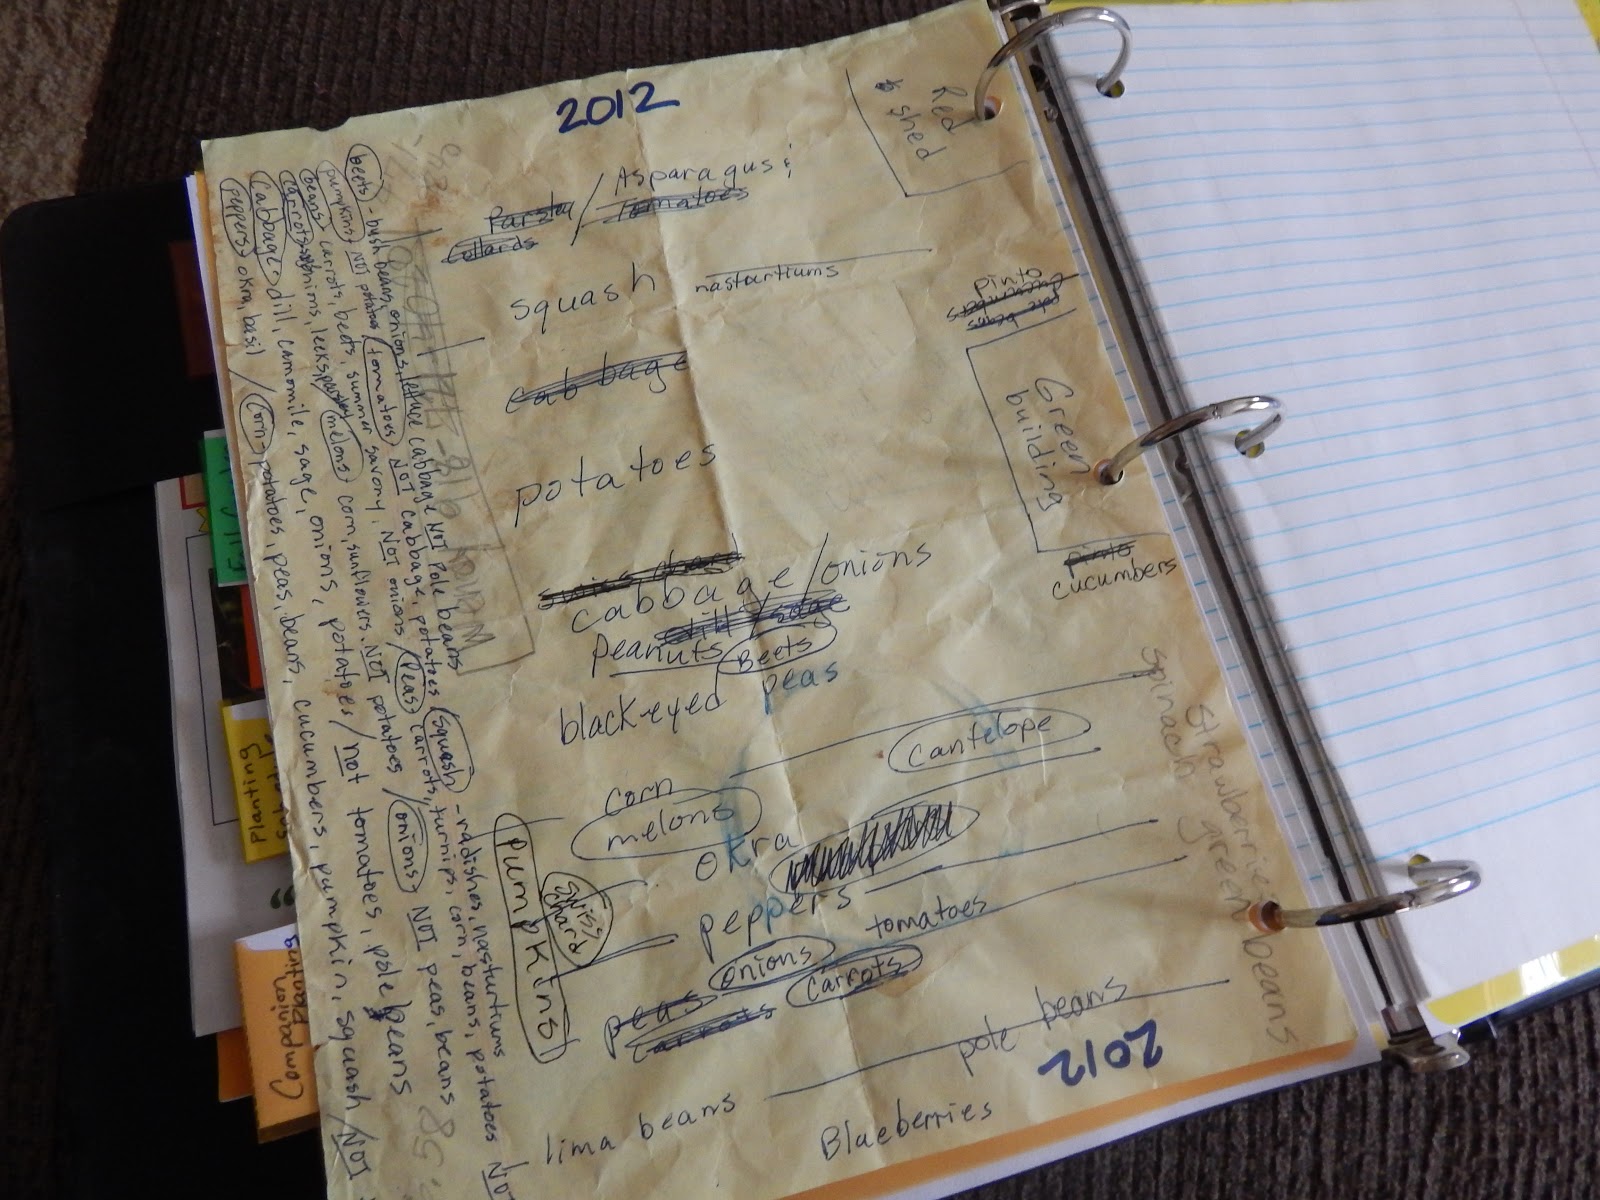 2012
Red
shed
Parsley / Asparagus &
Collards tomatoes
squash nasturtiums
pinto
cabbage
Green
building
potatoes
swiss chard
cabbage/onions
pinto
cucumbers
dill / sage
Peanuts Beets
black-eyed peas
spinach green beans
Strawberries
cantelope
corn
melons
okra
peppers
tomatoes
swiss
chard
Pumpkins
onions
peas carrots
carrots
pole beans
2012
lima beans
Blueberries
beets - bush beans, onions, lettuce cabbage NOT pole beans
squash - radishes, nasturtiums
pumpkins NOT potatoes / tomatoes NOT cabbage, potatoes
beans carrots, beets, summer savory, NOT onions / peas carrots, turnips, corn, beans, potatoes NOT
carrots onions, leeks, parsley / melons corn, sunflowers. NOT potatoes / onions NOT peas, beans
cabbage dill, camomile, sage, onions, potatoes / not tomatoes, pole beans
peppers okra, basil / corn potatoes, peas, beans, cucumbers, pumpkin, squash / NOT
85
Planting
Companion
Planting